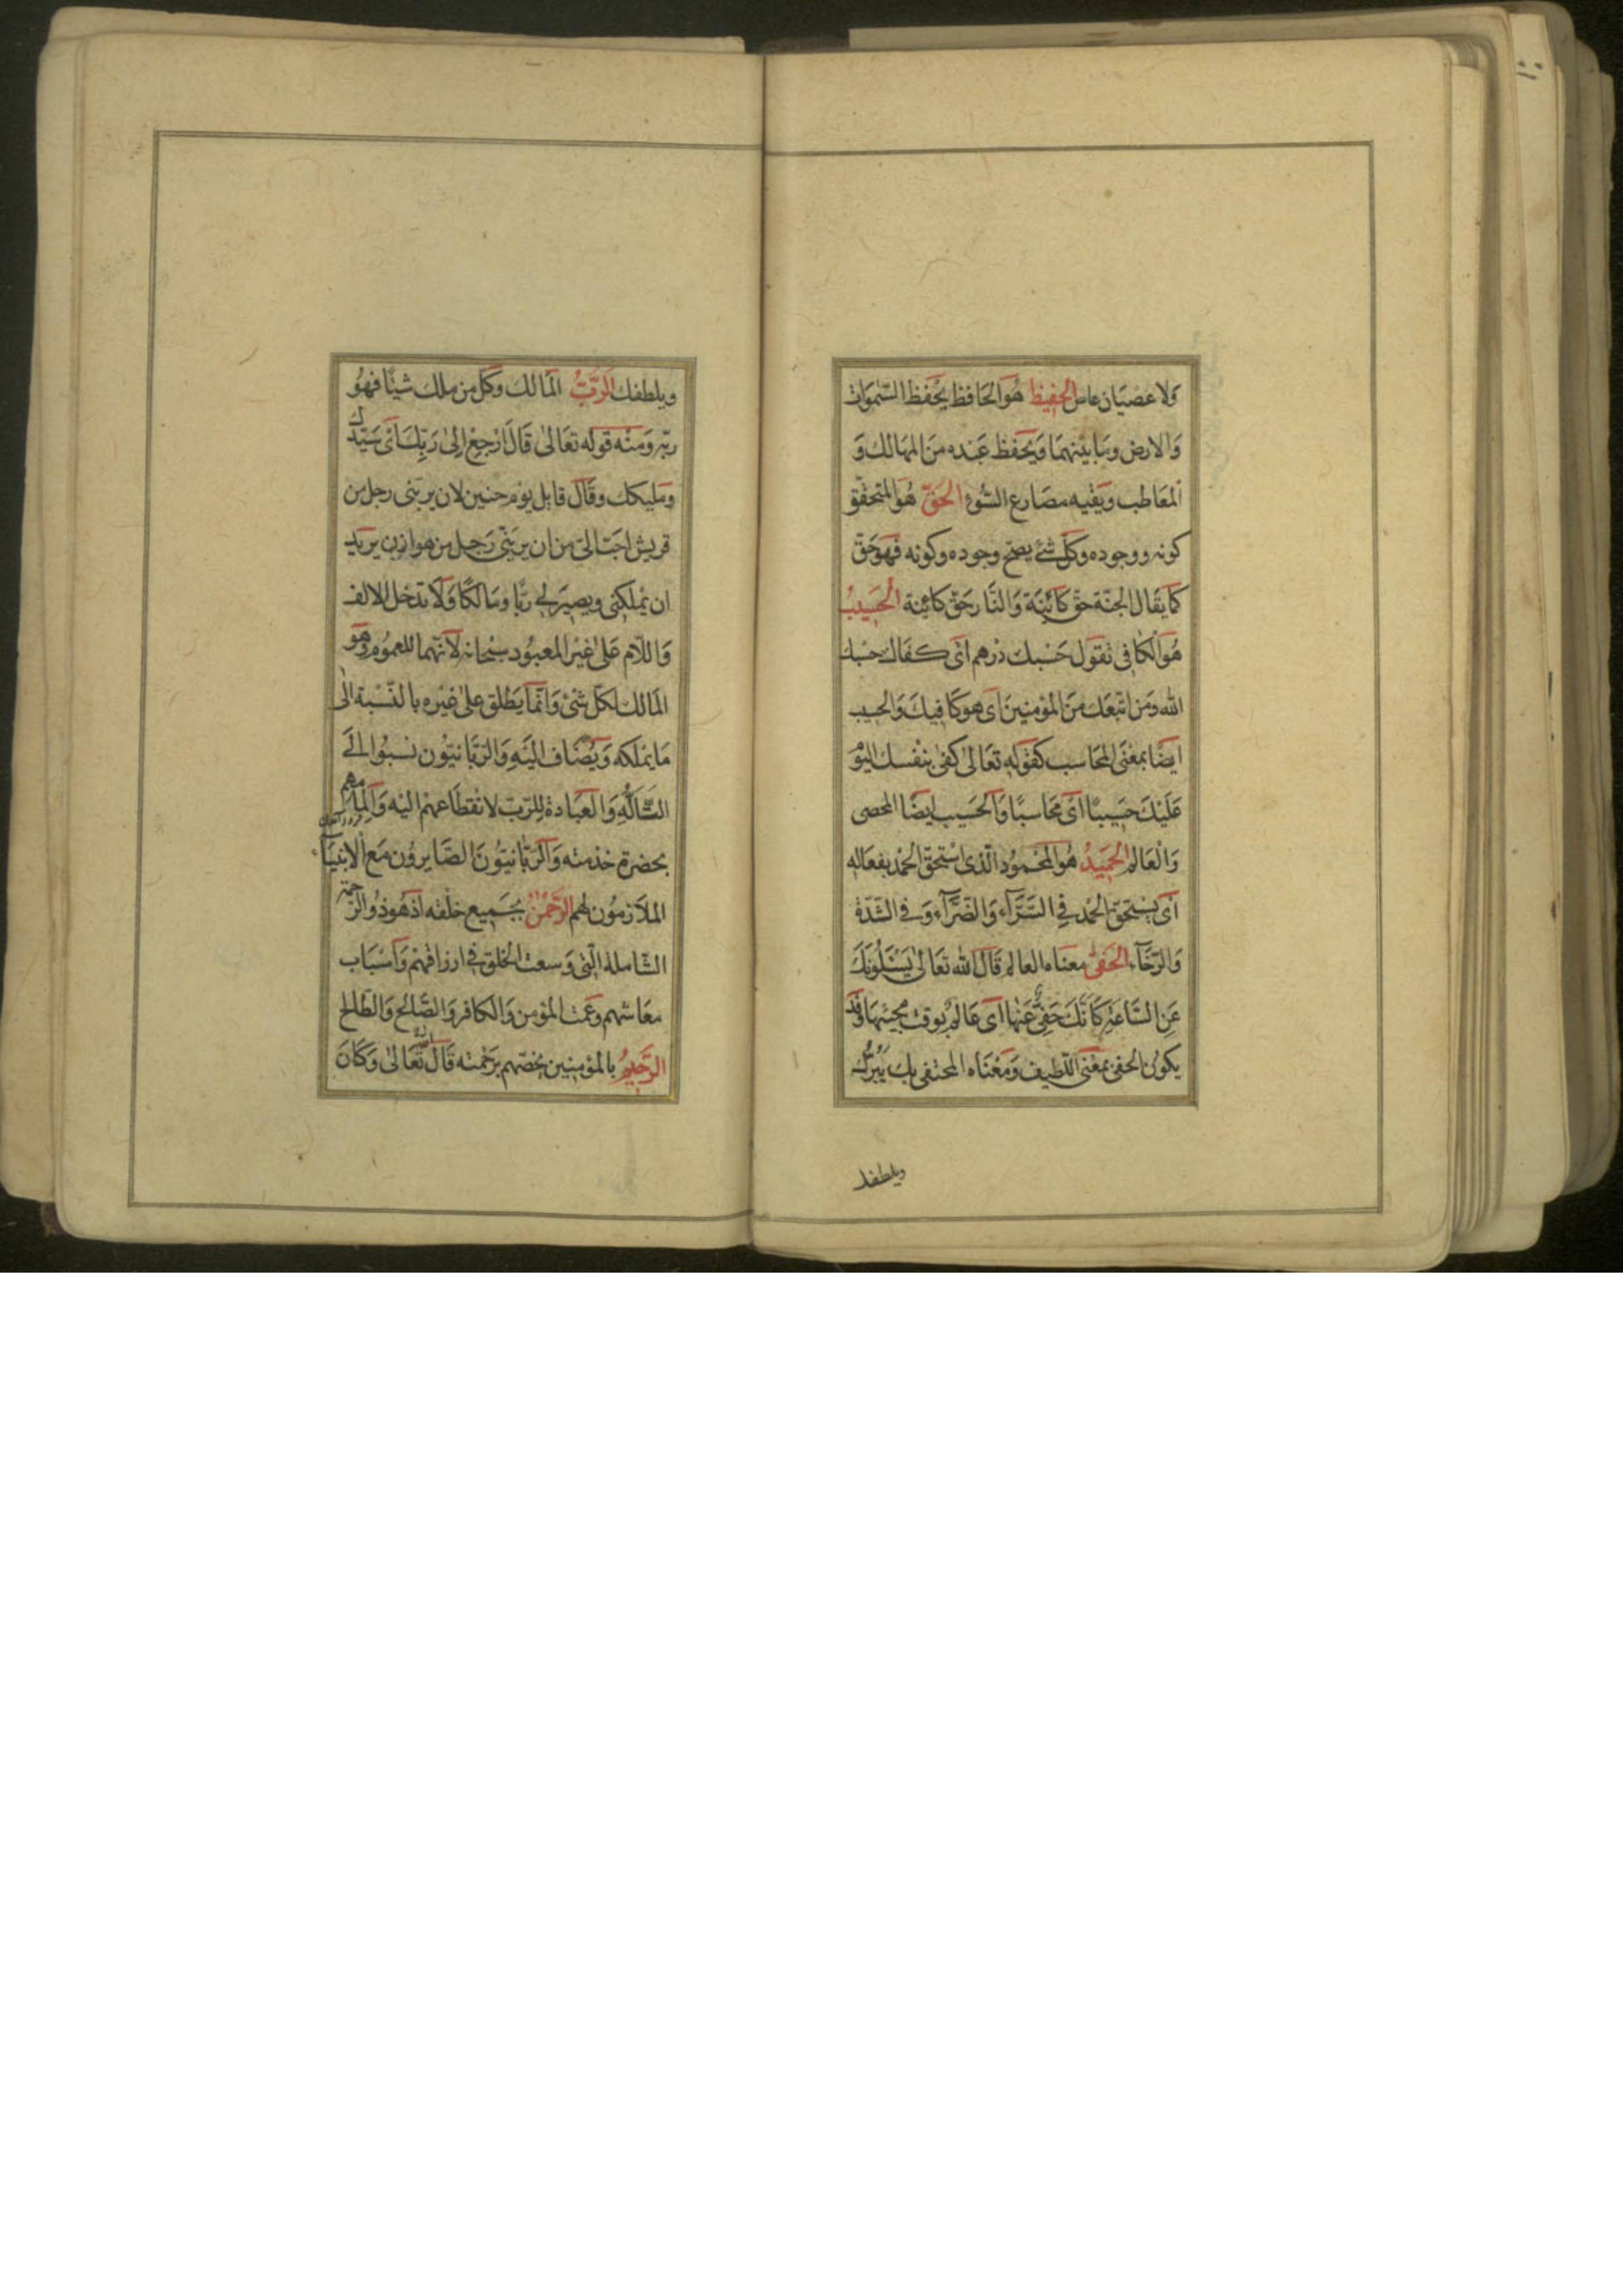 وَلا عصيَان عاصٍ الحفيظ هُوَ الحَافظ يحفظ السّمٰوَات
وَالارض وَمَا بَيْنهمَا وَيحفظ عَبْده منَ المهَالك وَ
المعَاطب ويَقيه مصَارع السّوء الحَقّ هُوَ المتحقّق
كونه ووجوده وَكلّ شَئ يصحّ وجوده وكونه فهوَ حَقّ
كمَا يقَال الجنّة حَقّ كَائِنَة وَالنَّار حَقّ كائنة الحَسِيبُ
هُوَ الكَافى تقول حَسْبك درهم اى كفَاك حَسْبك
الله وَمَن اتّبعَكَ منَ المؤمنينَ اى هوَ كَافيكَ وَالحَسيب
ايضًا بمعْنَى المحَاسب كقوله تعَالىٰ كفىٰ بنفسك اليَوْمَ
عَلَيْكَ حَسِيبًا اى محَاسبًا وَالحَسيب ايضًا المحصى
وَالعَالم الحَمِيدُ هُوَ المحْمُود الّذى استَحقّ الحمْد بفعَاله
اى يستَحقّ الحمْد فِي السَّرَّآءِ وَالضَّرَّآءِ وَفِي الشّدّة
وَالرّخَآء الحَفىُّ معنَاه العالم قَالَ الله تعَالىٰ يَسْئَلُونَكَ
عَنِ السَّاعَةِ كَأَنَّكَ حَفِىٌّ عَنْهَا اى عَالم بوقت مجيئهَا وَقَد
يكون الحفى بمعْنَى اللّطيف وَمَعْنَاه المحتفى بك يَبُرّك
ويلطفك
ويلطفك الرَّبُّ المَالك وَكلّ من ملك شيئًا فهُوَ
ربّه وَمنْه قَوله تعَالىٰ قَالَ ارْجِعْ إلىٰ رَبِّكَ اى سَيّدك
وَمليكك وقَالَ قايل يَوْم حنين لان يربّنى رجل من
قريش احَبّ الىّ من ان يربّنى رَجل من هوازن يريد
ان يملكنى ويصير لى ربًّا وَمَالكًا وَلَا تدخل الالف
وَاللّام عَلىٰ غيْر المعبُود سبْحَانه لأنّهما للعمُوم وَهوَ
المَالك لكلّ شَئ وَانّمَا يطْلق علىٰ غيْره بالنّسْبة الٰى
مَا يملكه وَيُضَاف الَيْه وَالرّبّانيّون نسبُوا الىَ
التَّألُّهِ وَالعبَادة لِلرّبّ لانقطَاعهم اليْه وَالمامهم
بحضرة خدْمته وَالرّبّانيّونَ الصّايرون مَع الانبيَآءِ
الملَازمُون لهم الرَّحْمٰنُ بجَميع خلْقه اذ هُو ذو الرّحمة
الشّاملة الّتى وَسعت الخلق فى ارزاقهم وَاسْبَاب
معَاشهم وَعَمّت المؤمن وَالكافر وَالصَّالح وَالطّالح
الرَّحِيمُ بالمؤمنين يخصّهم برَحْمته قَالَ الله تعَالىٰ وَكَانَ